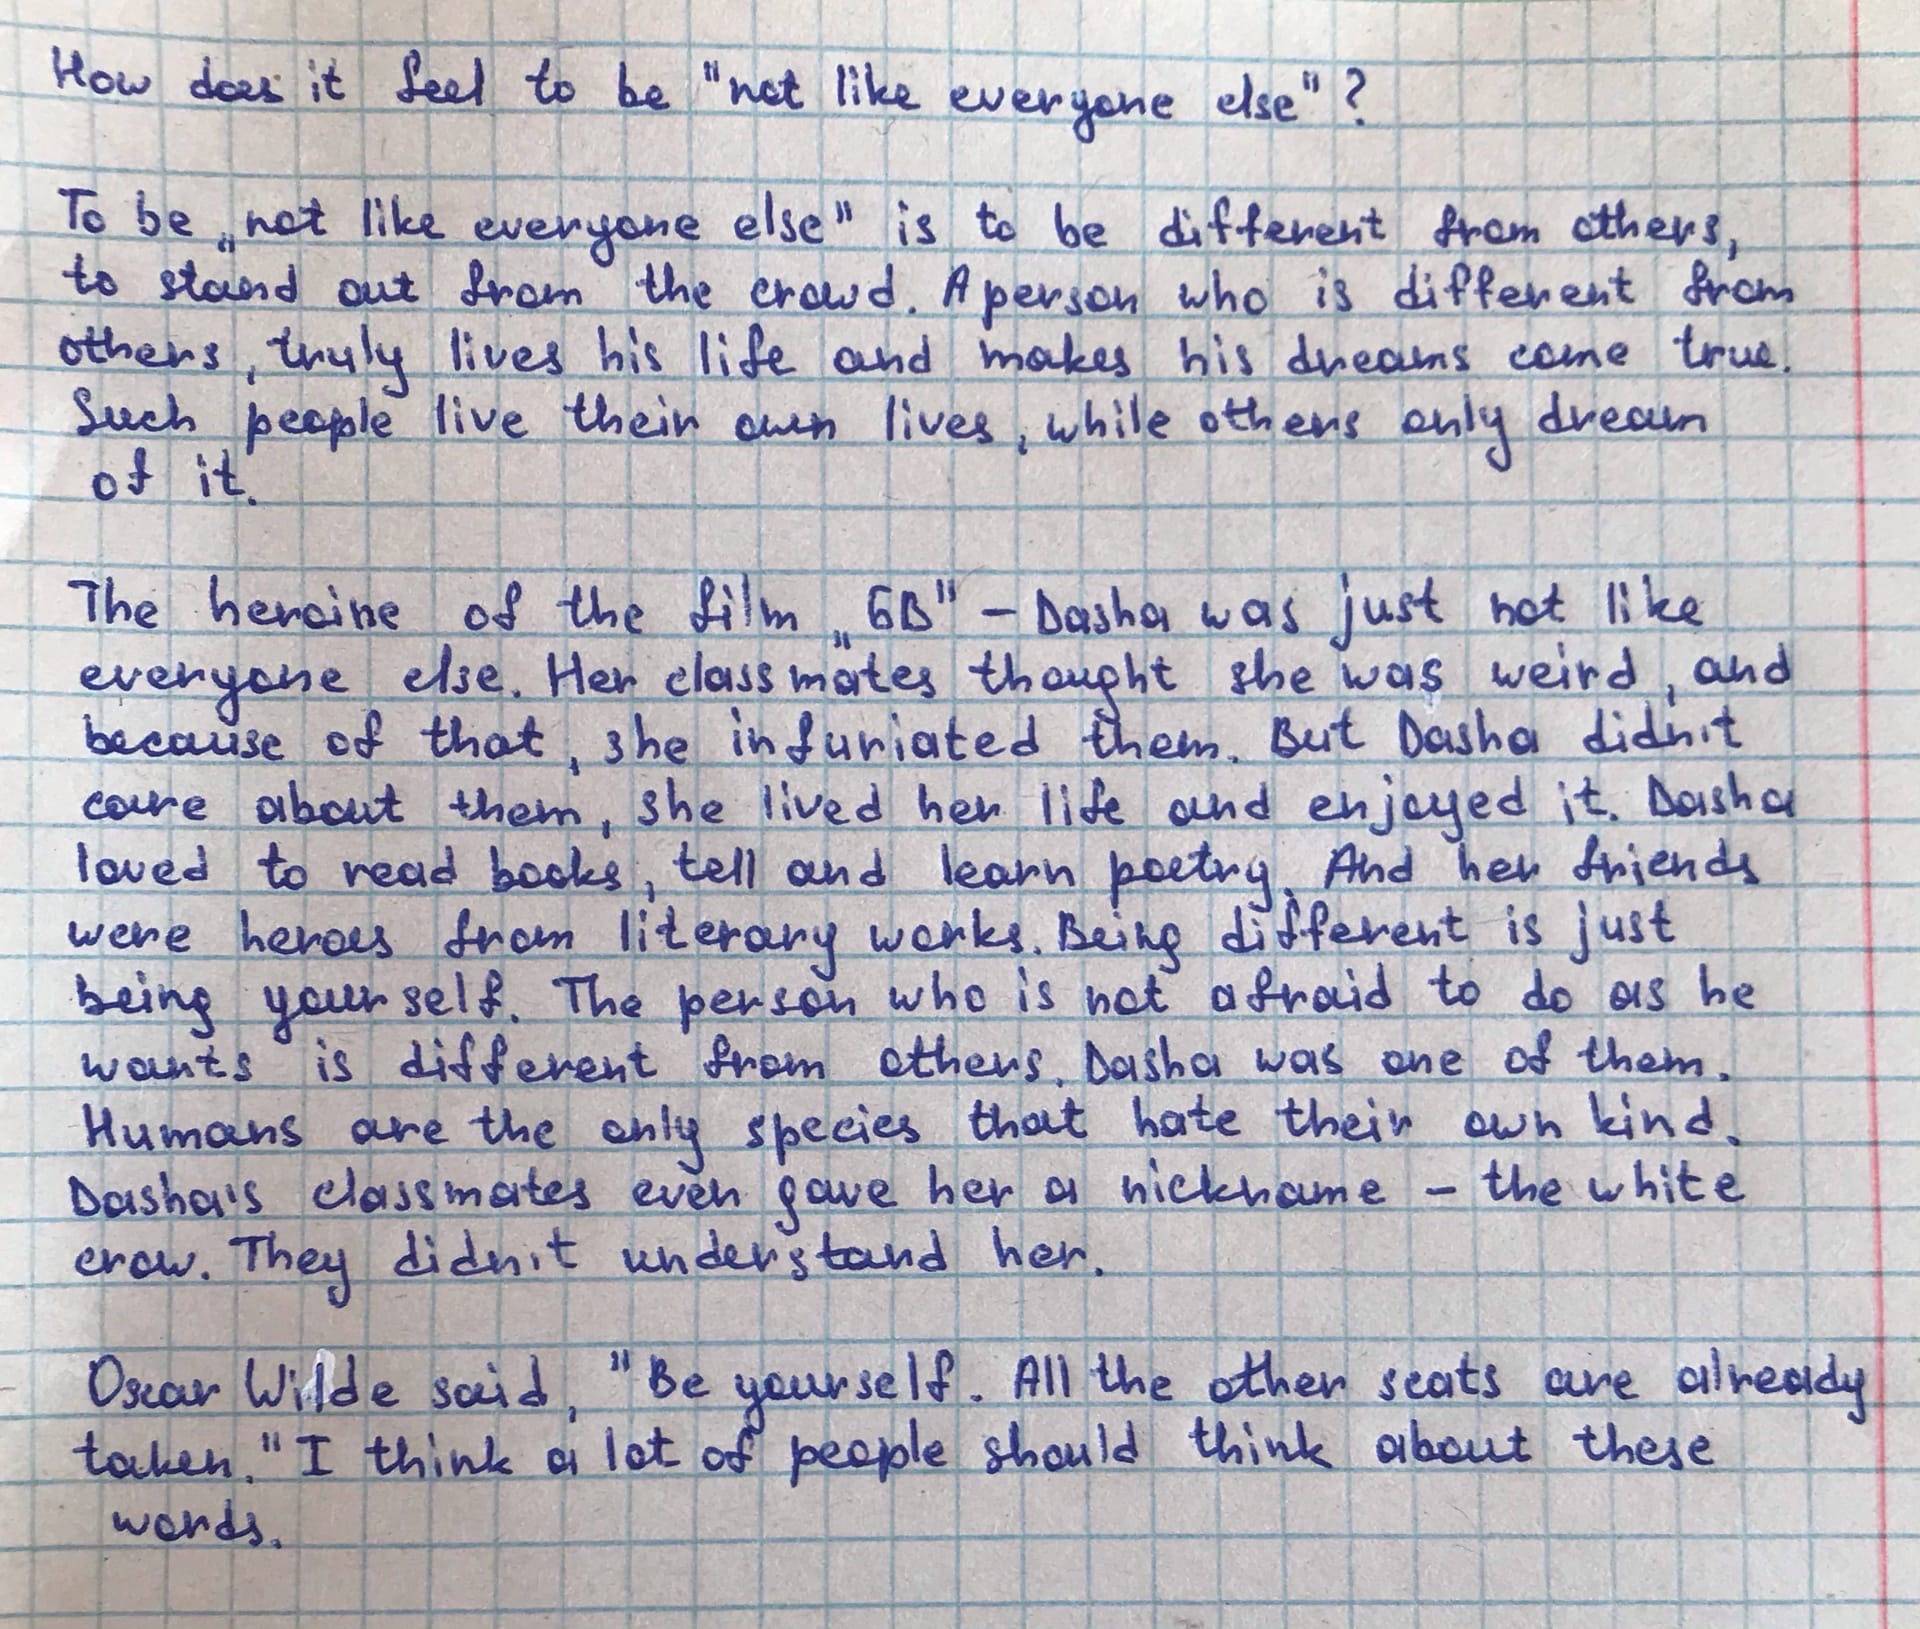 How does it feel to be "not like everyone else"?
To be „not like everyone else" is to be different from others,
to stand out from the crowd. A person who is different from
others, truly lives his life and makes his dreams come true.
Such people live their own lives, while others only dream
of it.
The heroine of the film „6B" – Dasha was just not like
everyone else. Her classmates thought she was weird, and
because of that, she infuriated them. But Dasha didn't
care about them, she lived her life and enjoyed it. Dasha
loved to read books, tell and learn poetry. And her friends
were heroes from literary works. Being different is just
being yourself. The person who is not afraid to do as he
wants is different from others. Dasha was one of them.
Humans are the only species that hate their own kind.
Dasha's classmates even gave her a nickname – the white
crow. They didn't understand her.
Oscar Wilde said, "Be yourself. All the other seats are already
taken." I think a lot of people should think about these
words.